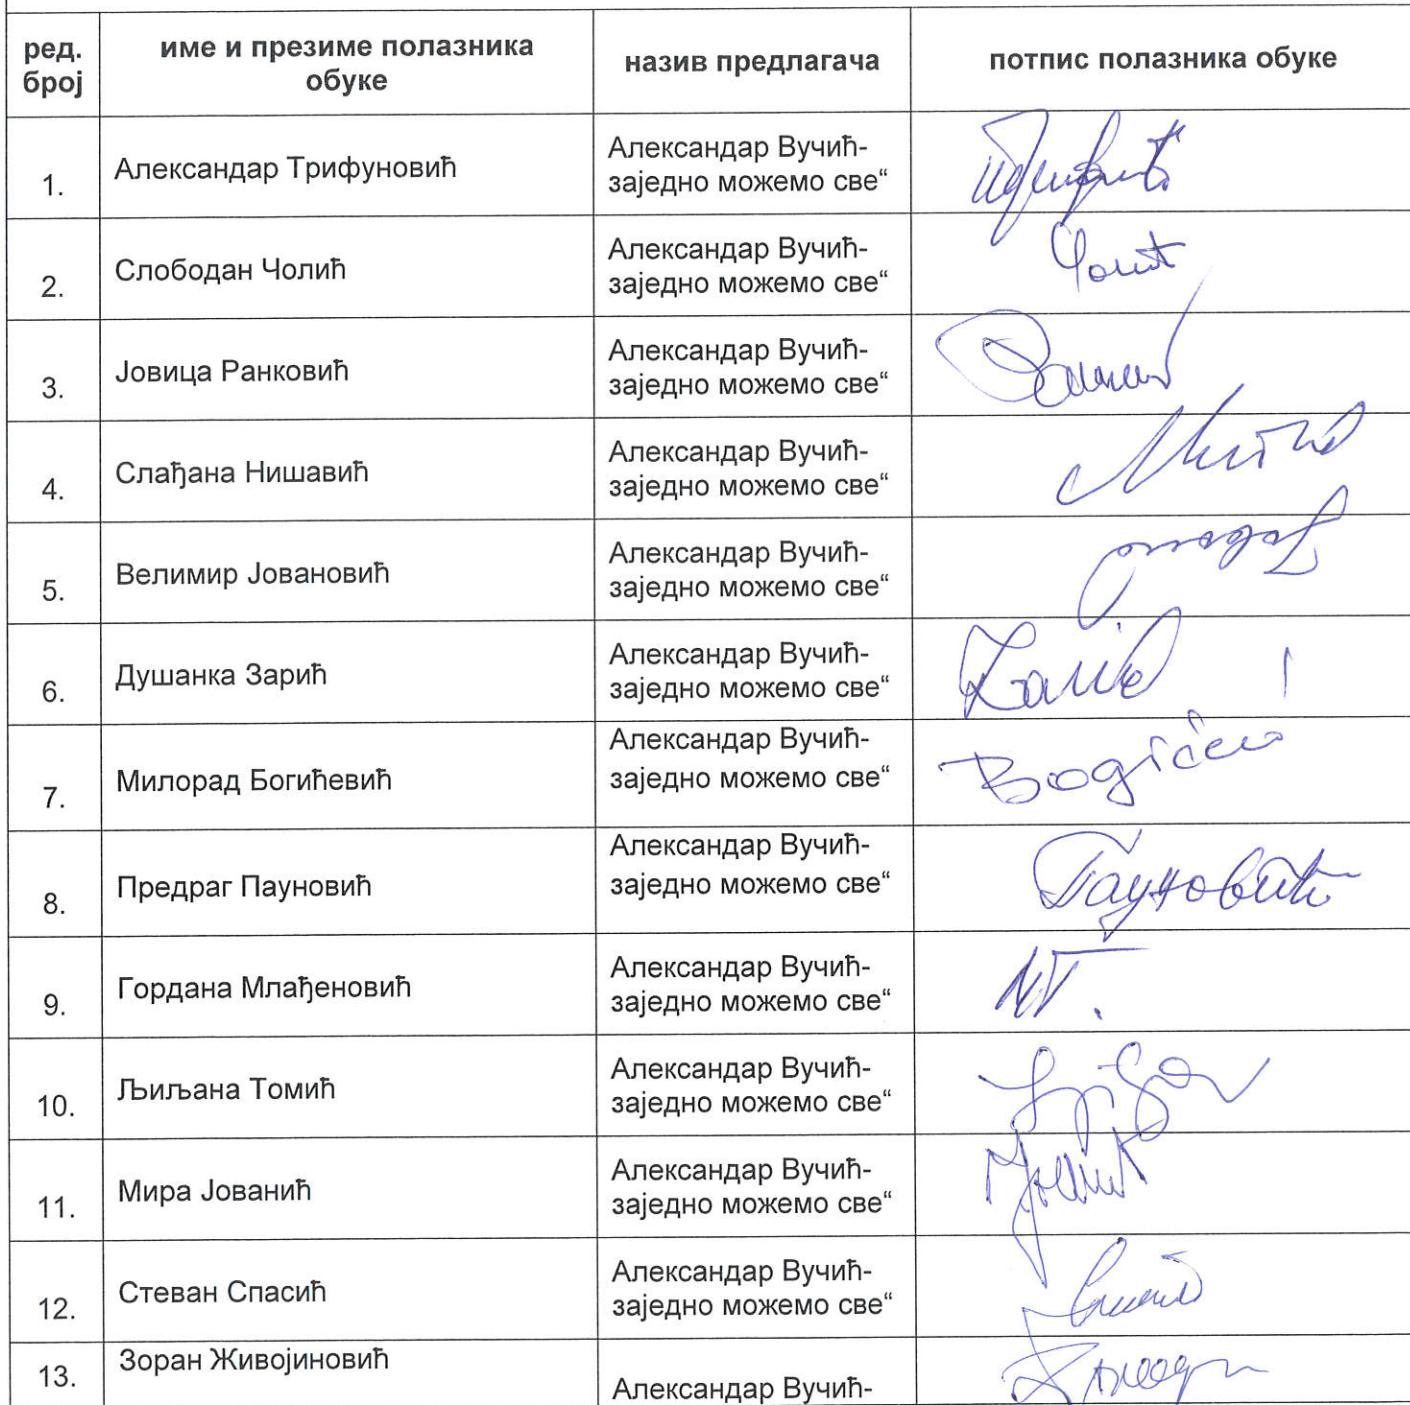 ред. број
име и презиме полазника
обуке
назив предлагача
потпис полазника обуке
1.
Александар Трифуновић
Александар Вучић-
заједно можемо све“
2.
Слободан Чолић
Александар Вучић-
заједно можемо све“
3.
Јовица Ранковић
Александар Вучић-
заједно можемо све“
4.
Слађана Нишавић
Александар Вучић-
заједно можемо све“
5.
Велимир Јовановић
Александар Вучић-
заједно можемо све“
6.
Душанка Зарић
Александар Вучић-
заједно можемо све“
7.
Милорад Богићевић
Александар Вучић-
заједно можемо све“
8.
Предраг Пауновић
Александар Вучић-
заједно можемо све“
Пауновић
9.
Гордана Млађеновић
Александар Вучић-
заједно можемо све“
10.
Љиљана Томић
Александар Вучић-
заједно можемо све“
11.
Мира Јованић
Александар Вучић-
заједно можемо све“
12.
Стеван Спасић
Александар Вучић-
заједно можемо све“
13.
Зоран Живојиновић
Александар Вучић-